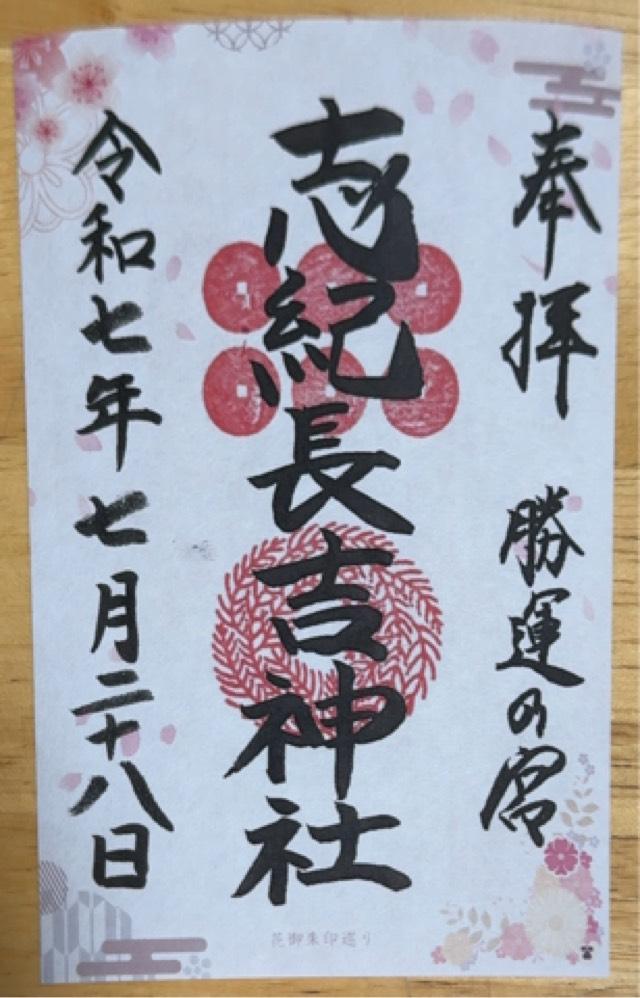 奉拝 勝運の宮
志紀長吉神社
令和七年七月二十八日
花御朱印巡り